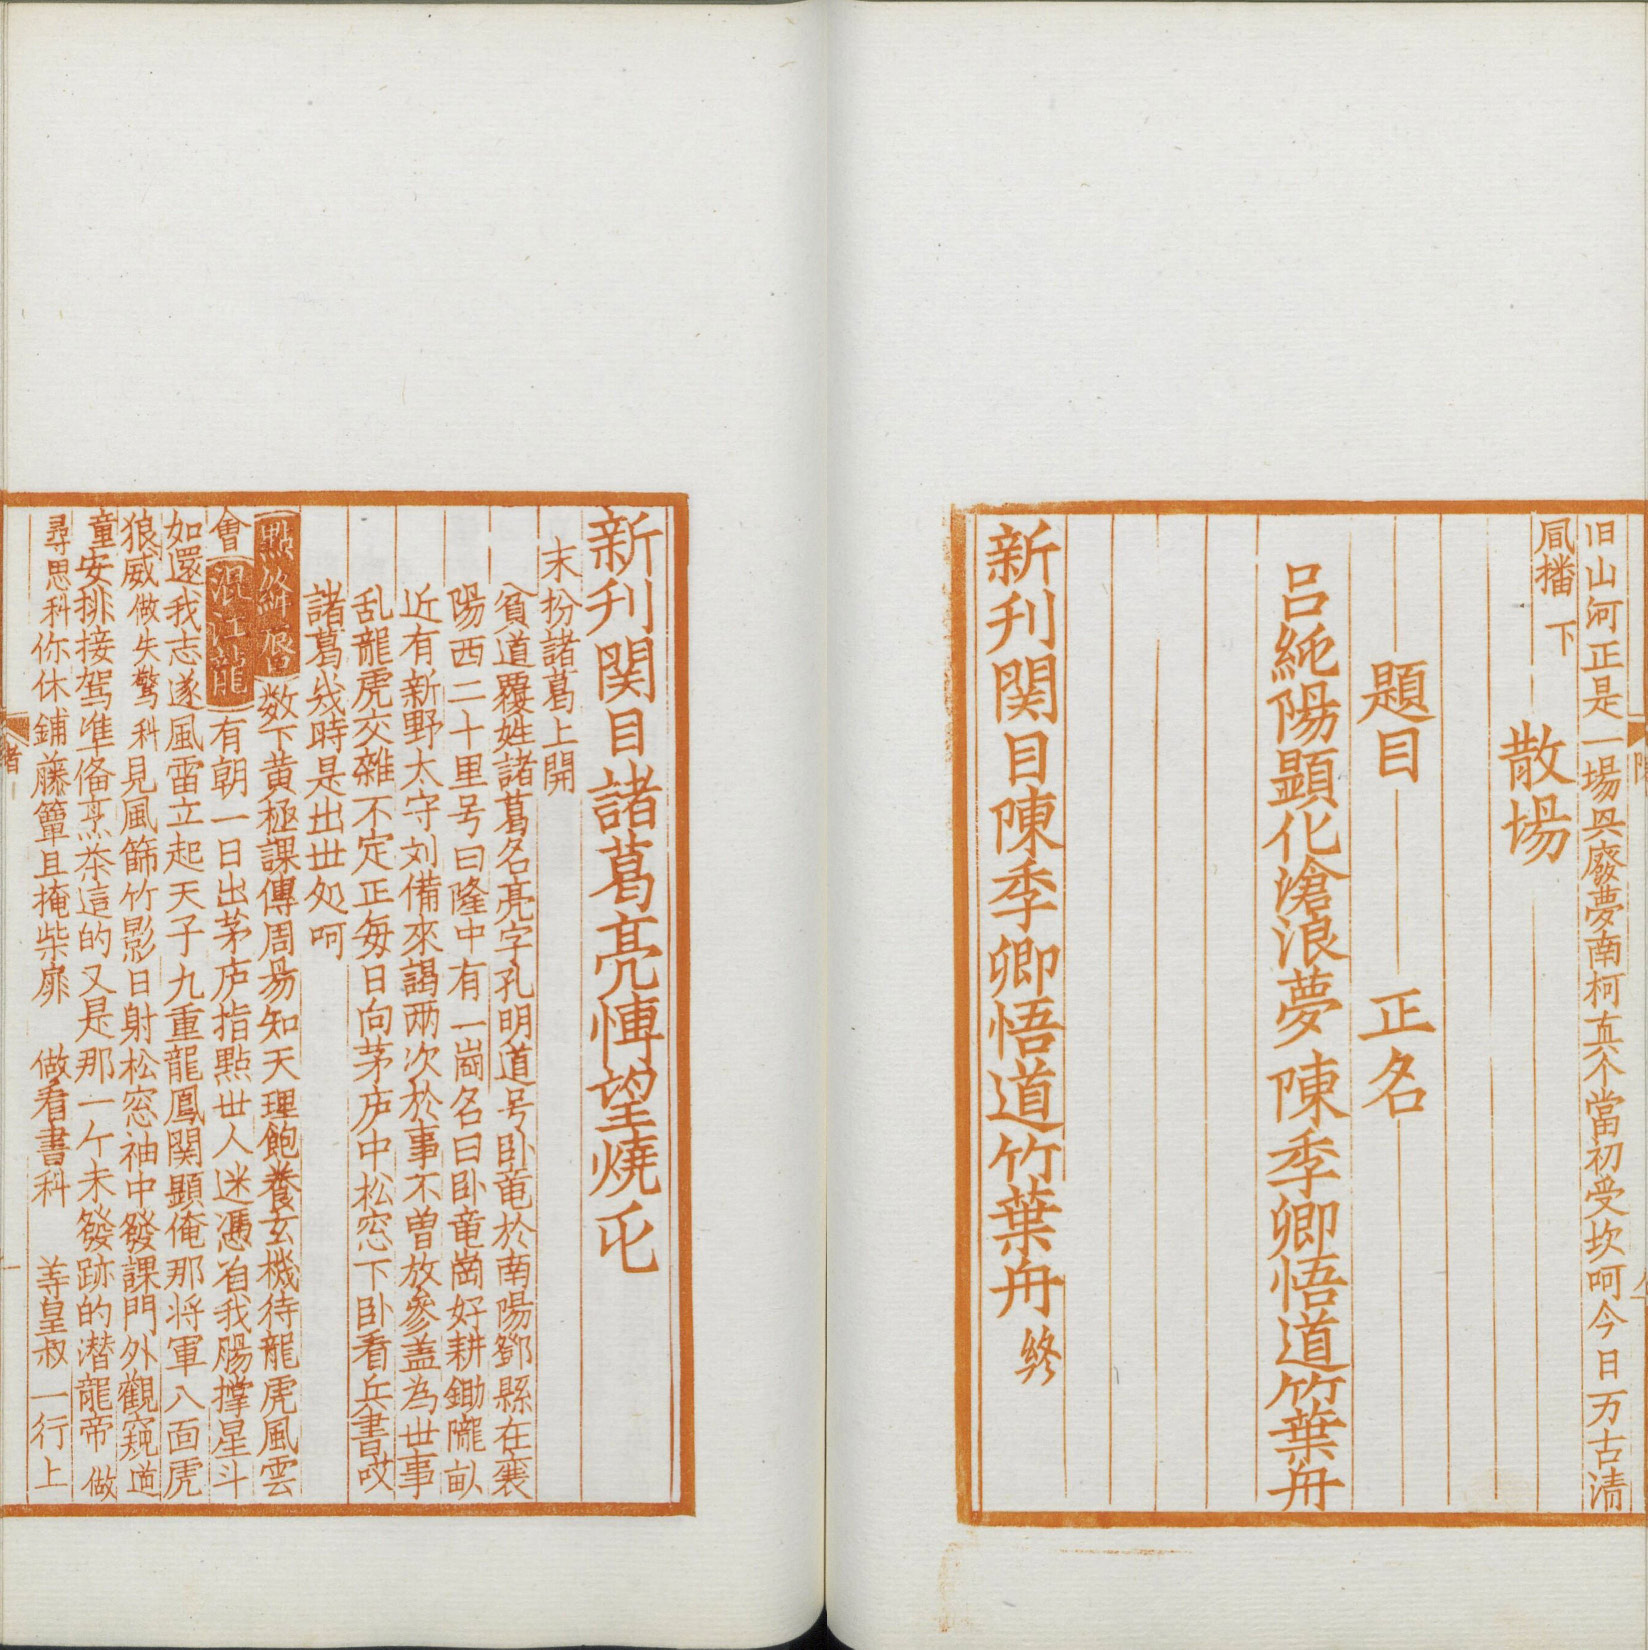 旧山河正是一場興廢夢南柯真个當初受坎呵今日万古清
風播 下
散場
題目 正名
呂純陽顕化滄浪夢 陳季卿悟道竹葉舟
新刋関目陳季卿悟道竹葉舟 終
新刋関目諸葛亮愽望燒屯
末扮諸葛上開
貧道覆姓諸葛名亮字孔明道号卧竜於南陽鄧縣在襄
陽西二十里号曰隆中有一崗名曰卧竜崗好耕鋤隴畝
近有新野太守刘備來謁两次於事不曽放參盖為世事
乱龍虎交雜不定正每日向茅庐中松窓下卧看兵書哎
諸葛㡬時是出世処呵
點絳唇 数下黄極課傳周易知天理飽養玄機待龍虎風雲
會 混江龍 有朝一日出茅庐指點世人迷憑着我腸撑星斗
如還我志遂風雷立起天子九重龍鳳関顕俺那将軍八面虎
狼威做失驚科見風篩竹影日射松窓袖中發課門外觀窺道
童安排接駕準俻烹茶這的又是那一个未發跡的潜龍帝 做
尋思科你休鋪藤簟且掩柴扉 做看書科 等皇叔一行上